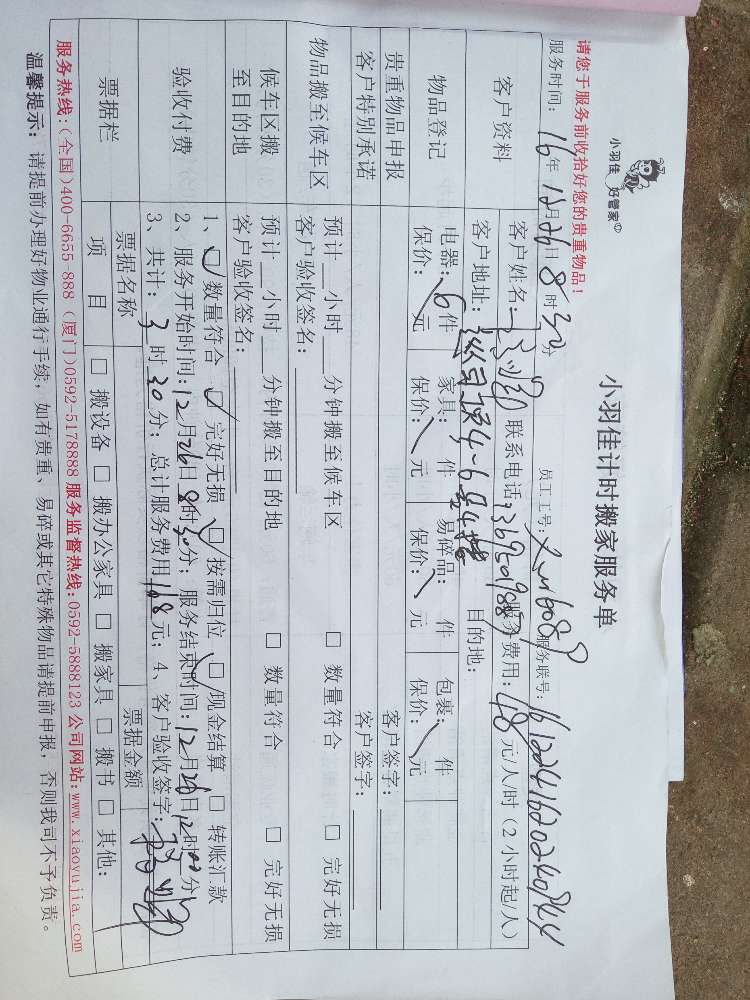 小羽佳 好管家
小羽佳计时搬家服务单
请您于服务前收拾好您的贵重物品！
服务时间： 16年 12月26日 8时30分 员工工号： 服务联号：
客户资料 客户姓名： 联系电话： 服务费用：48元/人时（2小时起/人）
客户地址： 目的地：
物品登记 电器：6件 家具： 件 易碎品： 件 包裹： 件
保价： 元 保价： 元 保价： 元 保价： 元
贵重物品申报 客户签字：
客户特别承诺 客户签字：
物品搬至候车区 预计 小时 分钟搬至候车区 □ 数量符合 □ 完好无损
客户验收签名：
候车区搬至目的地 预计 小时 分钟搬至目的地 □ 数量符合 □ 完好无损
客户验收签名：
验收付费 1、☑ 数量符合 ☑ 完好无损 ☑ 按需归位 □ 现金结算 □ 转账汇款
2、服务开始时间：12月26日8时30分；服务结束时间：12月26日12时00分
3、共计：3时30分；总计服务费用168元；4、客户验收签字：
票据栏 票据名称 票据金额
项目 □ 搬设备 □ 搬办公家具 □ 搬家具 □ 搬书 □ 其他：
服务热线：(全国)400-6655 888 (厦门)0592-5178888 服务监督热线：0592-5888123 公司网站：www.xiaoyujia.com
温馨提示：请提前办理好物业通行手续，如有贵重、易碎或其它特殊物品请提前申报，否则我司不予负责。